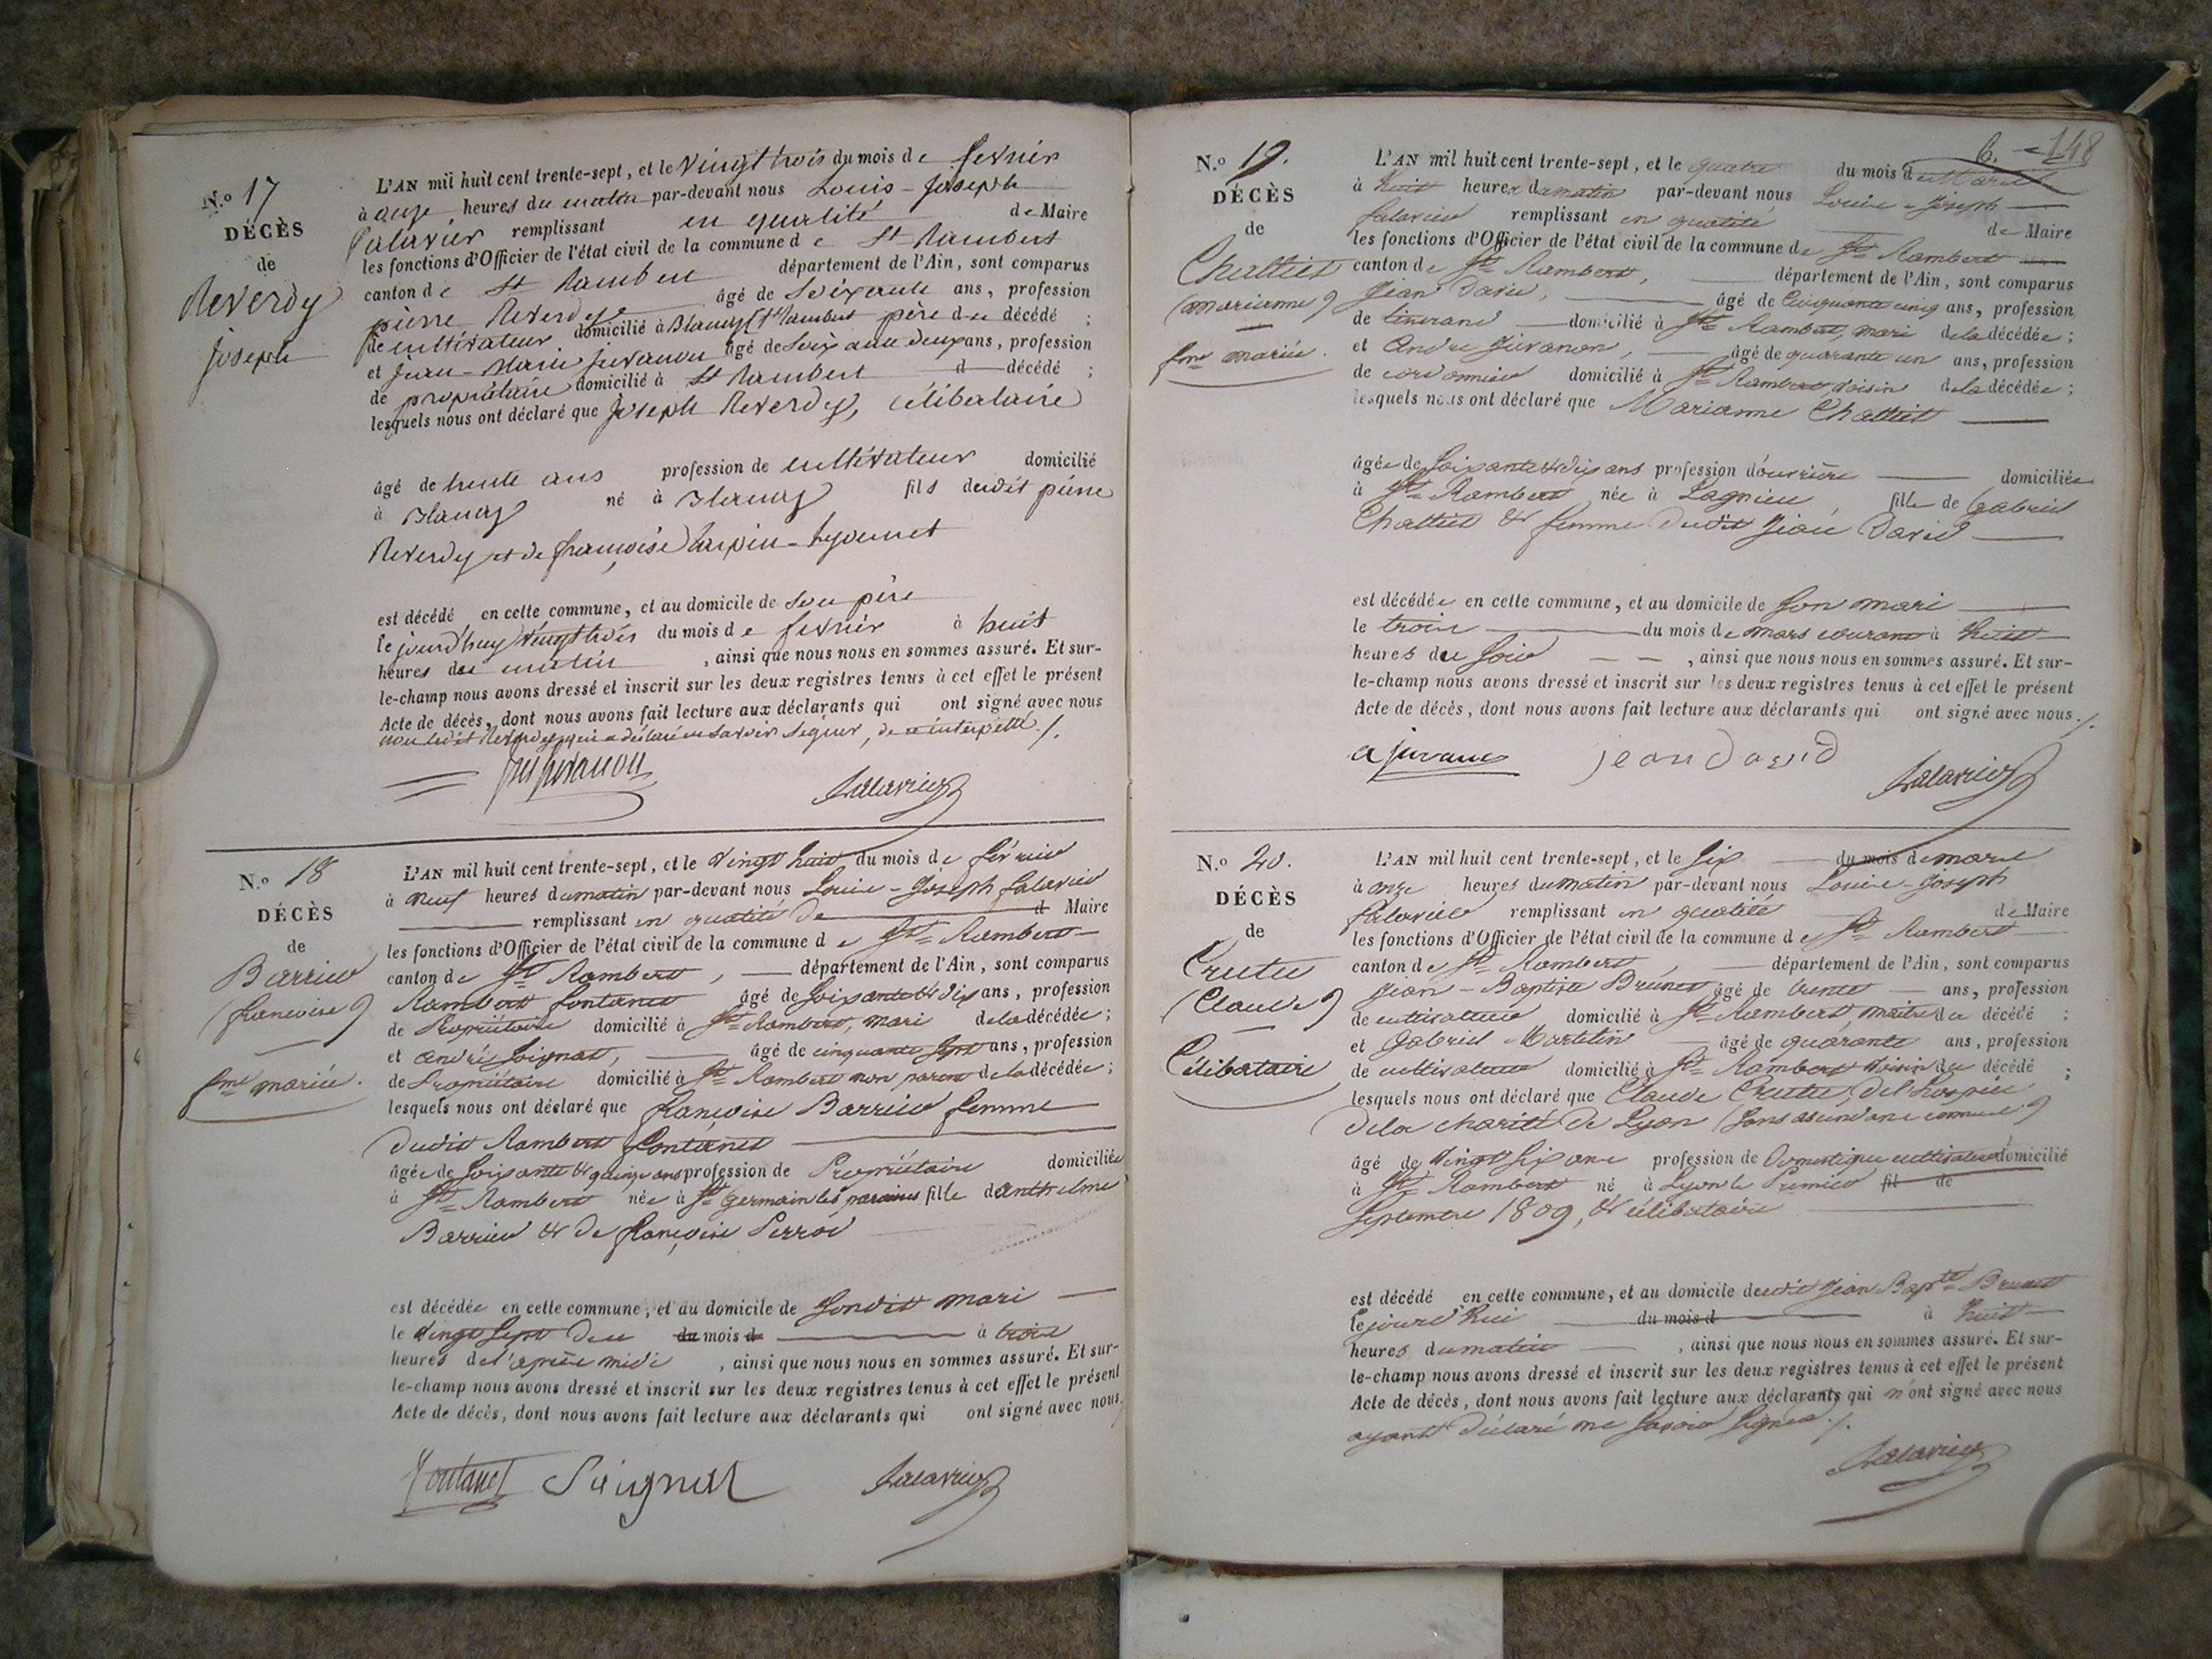 N.o 17
DÉCÈS
de
Reverdy
joseph
L'AN mil huit cent trente-sept, et le vingt trois du mois de fevrier
à onze heures du matin par-devant nous Louis-joseph
Salavier remplissant en qualité de Maire
les fonctions d'Officier de l'état civil de la commune de St Rambert
canton de St Rambert département de l'Ain, sont comparus
pierre Reverdy âgé de Soixante ans, profession
de cultivateur domicilié à Blanaz St Rambert père du décédé ;
et jean-Marie juvanon âgé de Soixante deux ans, profession
de propriétaire domicilié à St Rambert d décédé ;
lesquels nous ont déclaré que joseph Reverdy, célibataire
âgé de trente ans profession de cultivateur domicilié
à Blanaz né à Blanaz fils dudit pierre
Reverdy et de françoise
est décédé en cette commune, et au domicile de Son père
le jourd'huy vingt trois du mois de fevrier à huit
heures du matin, ainsi que nous nous en sommes assuré. Et sur-
le-champ nous avons dressé et inscrit sur les deux registres tenus à cet effet le présent
Acte de décès, dont nous avons fait lecture aux déclarants qui ont signé avec nous
non ledit Reverdy qui a déclaré ne savoir signer, de ce interpellé ./.
Salavier
N.o 18
DÉCÈS
de
Barrieu
(françoise)
fme mariée.
L'AN mil huit cent trente-sept, et le vingt huit du mois de février
à neuf heures du matin par-devant nous Louis-Joseph Salavier
remplissant en qualité de d Maire
les fonctions d'Officier de l'état civil de la commune de St Rambert
canton de St Rambert, département de l'Ain, sont comparus
Rambert fontanet âgé de Soixante & dix ans, profession
de Propriétaire domicilié à St Rambert, mari de la décédée ;
et andré Soignat, âgé de cinquante Sept ans, profession
de Propriétaire domicilié à St Rambert non parent de la décédée ;
lesquels nous ont déclaré que françoise Barrieu femme
dudit Rambert fontanet
âgée de Soixante & quinze ans profession de Propriétaire domiciliée
à St Rambert née à St germain les paroisses fille d'anthelme
Barrieu & de françoise Perroi
est décédée en cette commune, et au domicile de Sondit mari
le vingt Sept du du mois d à trois
heures de l'après midi, ainsi que nous nous en sommes assuré. Et sur-
le-champ nous avons dressé et inscrit sur les deux registres tenus à cet effet le présent
Acte de décès, dont nous avons fait lecture aux déclarants qui ont signé avec nous./
Fontanet Soignat Salavier
6. 148
N.o 19.
DÉCÈS
de
Chattiet
(marianne)
fme mariée.
L'AN mil huit cent trente-sept, et le quatre du mois de Mars
à huit heures du matin par-devant nous Louis-Joseph
Salavier remplissant en qualité de Maire
les fonctions d'Officier de l'état civil de la commune de St Rambert
canton de St Rambert, département de l'Ain, sont comparus
Jean David, âgé de Cinquante cinq ans, profession
de tisserand domicilié à St Rambert, mari de la décédée ;
et André Juvanon, âgé de quarante un ans, profession
de cordonnier domicilié à St Rambert voisin de la décédée ;
lesquels nous ont déclaré que Marianne Chattiet
âgée de Soixante & dix ans profession d'ouvrière domiciliée
à St Rambert née à Lagnieu fille de Gabriel
Chattiet & femme dudit Jean David
est décédée en cette commune, et au domicile de Son mari
le trois du mois de mars courant à huit
heures du Soir, ainsi que nous nous en sommes assuré. Et sur-
le-champ nous avons dressé et inscrit sur les deux registres tenus à cet effet le présent
Acte de décès, dont nous avons fait lecture aux déclarants qui ont signé avec nous./.
a juvanon jean david
Salavier
N.o 20.
DÉCÈS
de
Crutu
(Claude)
Célibataire
L'AN mil huit cent trente-sept, et le Six du mois de mars
à onze heures du matin par-devant nous Louis-Joseph
Salavier remplissant en qualité de Maire
les fonctions d'Officier de l'état civil de la commune de St Rambert
canton de St Rambert, département de l'Ain, sont comparus
Jean-Baptiste Brunet âgé de trente ans, profession
de cultivateur domicilié à St Rambert, maître du décédé ;
et Gabriel Martelin âgé de quarante ans, profession
de cultivateur domicilié à St Rambert voisin du décédé ;
lesquels nous ont déclaré que Claude Crutu, de l'hospice
de la charité de Lyon (Sans ascendans connus)
âgé de vingt Six ans profession de Domestique cultivateur domicilié
à St Rambert né à Lyon le Premier fil de
Septembre 1809, & célibataire
est décédé en cette commune, et au domicile dudit Jean Bapte Brunet
le jourd'hui du mois d à huit
heures du matin, ainsi que nous nous en sommes assuré. Et sur-
le-champ nous avons dressé et inscrit sur les deux registres tenus à cet effet le présent
Acte de décès, dont nous avons fait lecture aux déclarants qui n'ont signé avec nous
ayant déclaré ne Savoir Signer./.
Salavier